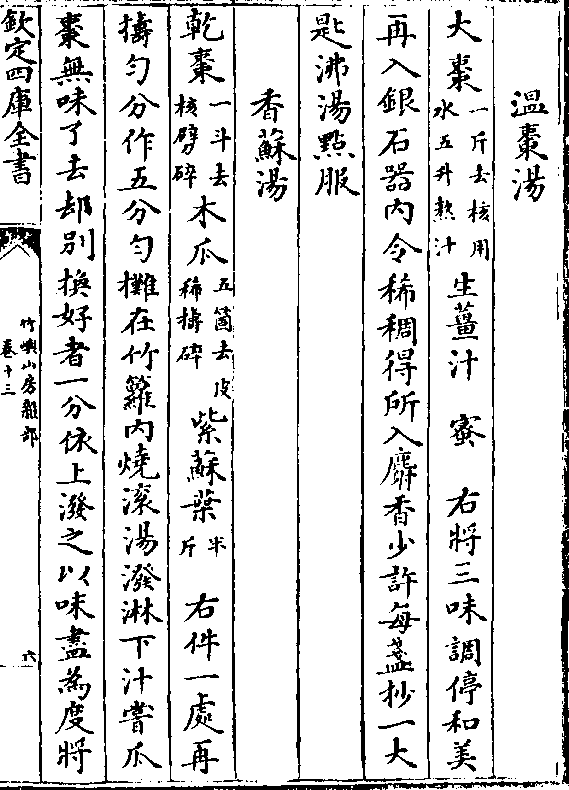 溫棗湯
大棗一斤去核用水五升熬汁生薑汁 蜜 右將三味調停和美
再入銀石器内令稀稠得所入麝香少許每盞抄一大
匙沸湯點服
香蘇湯
乾棗一斗去核劈碎木瓜五箇去皮稀擣碎紫蘇葉半斤 右件一處再
擣勻分作五分勻攤在竹籮内燒滚湯潑淋下汁嘗瓜
棗無味了去却別換好者一分依上潑之以味盡為度將
欽定四庫全書
竹嶼山房雜部
卷十三
六